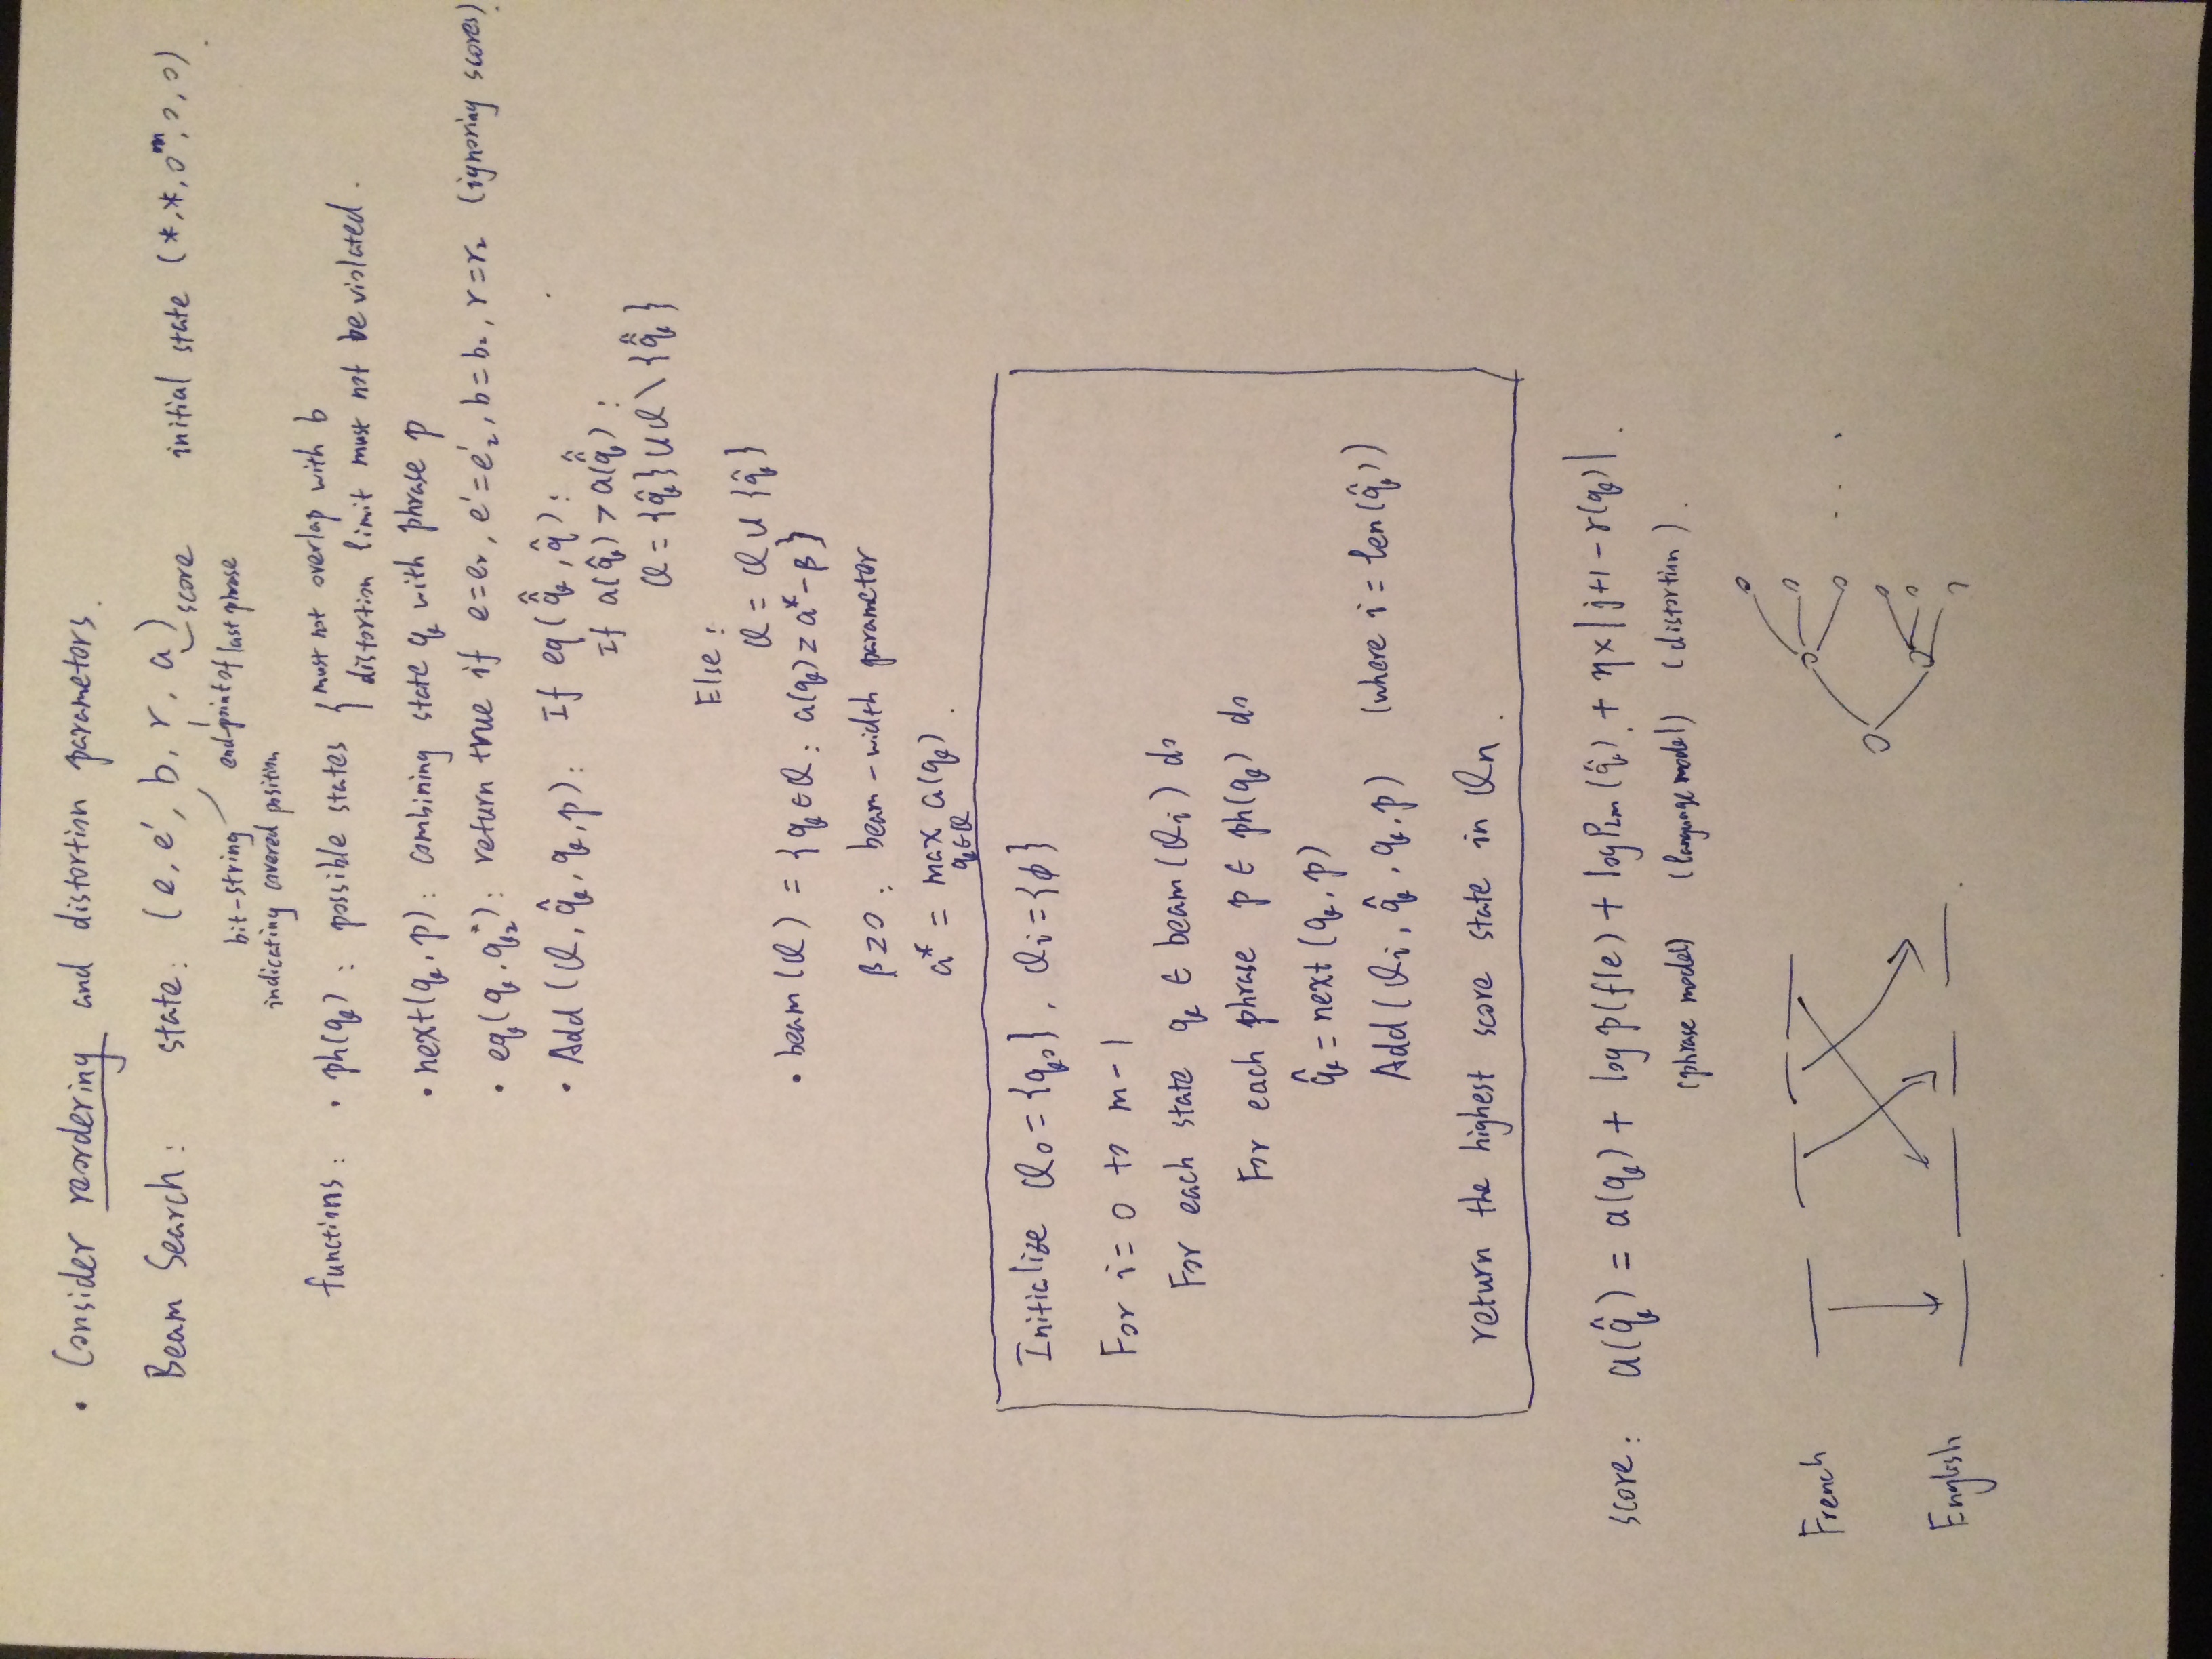 • Consider reordering and distortion parametors.
Beam Search: state: (e, e', b, r, a) initial state (*, *, 0^m, 0, 0).
score
bit-string end-point of last phrase
indicating covered position
functions: • ph(q): possible states { must not overlap with b
distortion limit must not be violated.
• next(q, p): combining state q with phrase p
• eq(q, q₂*): return true if e=e₂, e'=e'₂, b=b₂, r=r₂ (ignoring scores)
• Add (Q, q̂, q, p): If eq(q̂̂, q̂):
If a(q̂) > a(q̂̂):
Q = {q̂} ∪ Q \ {q̂̂}
Else:
Q = Q ∪ {q̂}
• beam (Q) = {q ∈ Q: a(q) ≥ a* - β}
β ≥ 0: beam-width parametor
a* = max a(q).
q∈Q
Initialize Q₀ = {q₀}, Qi = {ϕ}
For i = 0 to m-1
For each state q ∈ beam(Qi) do
For each phrase p ∈ ph(q) do
q̂ = next (q, p)
Add (Qi, q̂, q, p) (where i = len(q̂))
return the highest score state in Qn.
score: a(q̂) = a(q) + log p(f|e) + log P_Lm(q̂) + η × |j+1 - r(q)|.
(phrase model) (language model) (distortion).
French
. . . .
English